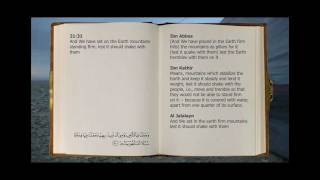 31:31
And We have set on the Earth mountains
standing firm, lest it should shake with
them
Ibn Abbas
(And We have placed in the Earth firm
hills) the mountains as pillars for it
(lest it quake with them) lest the Earth
trembles with them on it
Ibn Kathir
Means, mountains which stabilize the
Earth and keep it steady and lend it
weight, lest it should shake with the
people, i.e., move and tremble so that
they would not be able to stand firm
on it - because it is covered with water,
apart from one quarter of its surface.
Al Jalalayn
And We set in the earth firm mountains
lest it should shake with them